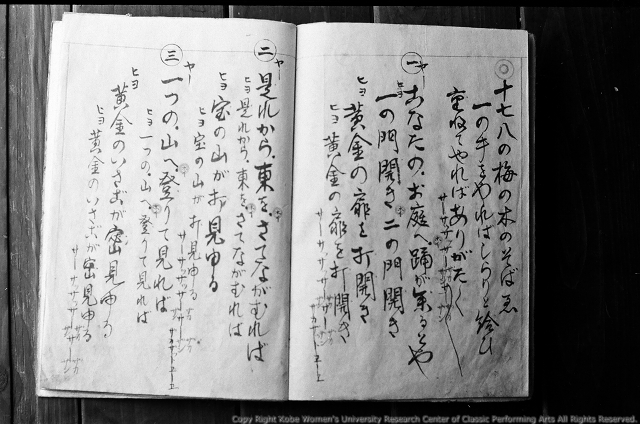 ◎
十七八の梅の木のそばゑ
一の手をやればしらりと
重ねてやればありがたく
サーササササ
一 ヤあなたの、お庭へ踊が参るとや
ヒヨ一の門開き二の門開き
ヒヨ黄金の扉を打開き
ヒヨ黄金の扉を打開き
サーササササ
二 ヤ是れから、東を、さてながむれば
ヒヨ是れから、東をさてながむれば
ヒヨ宝の山がお見ゆる
ヒヨ宝の山がお見ゆる
サーササササ
三 ヤ一つの、山へ、登りて見れば
ヒヨ一つの、山へ登りて見れば
ヒヨ黄金のいさごが御見ゆる
ヒヨ黄金のいさごが御見ゆる
サーササササ
Copy Right Kobe Women's University Research Center of Classic Performing Arts All Rights Reserved.